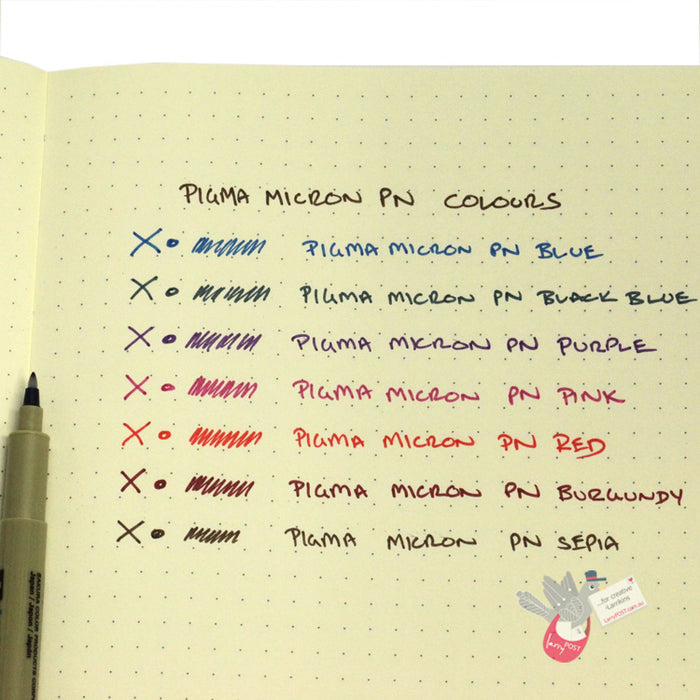 PIGMA MICRON PN COLOURS
X PIGMA MICRON PN BLUE
X PIGMA MICRON PN BLACK BLUE
X PIGMA MICRON PN PURPLE
X PIGMA MICRON PN PINK
X PIGMA MICRON PN RED
X PIGMA MICRON PN BURGUNDY
X PIGMA MICRON PN SEPIA
SAKURA COLOR PRODUCTS
Japan / Japon / Japan
...for creative
Larrikins
LarryPOST.com.au
larryPOST